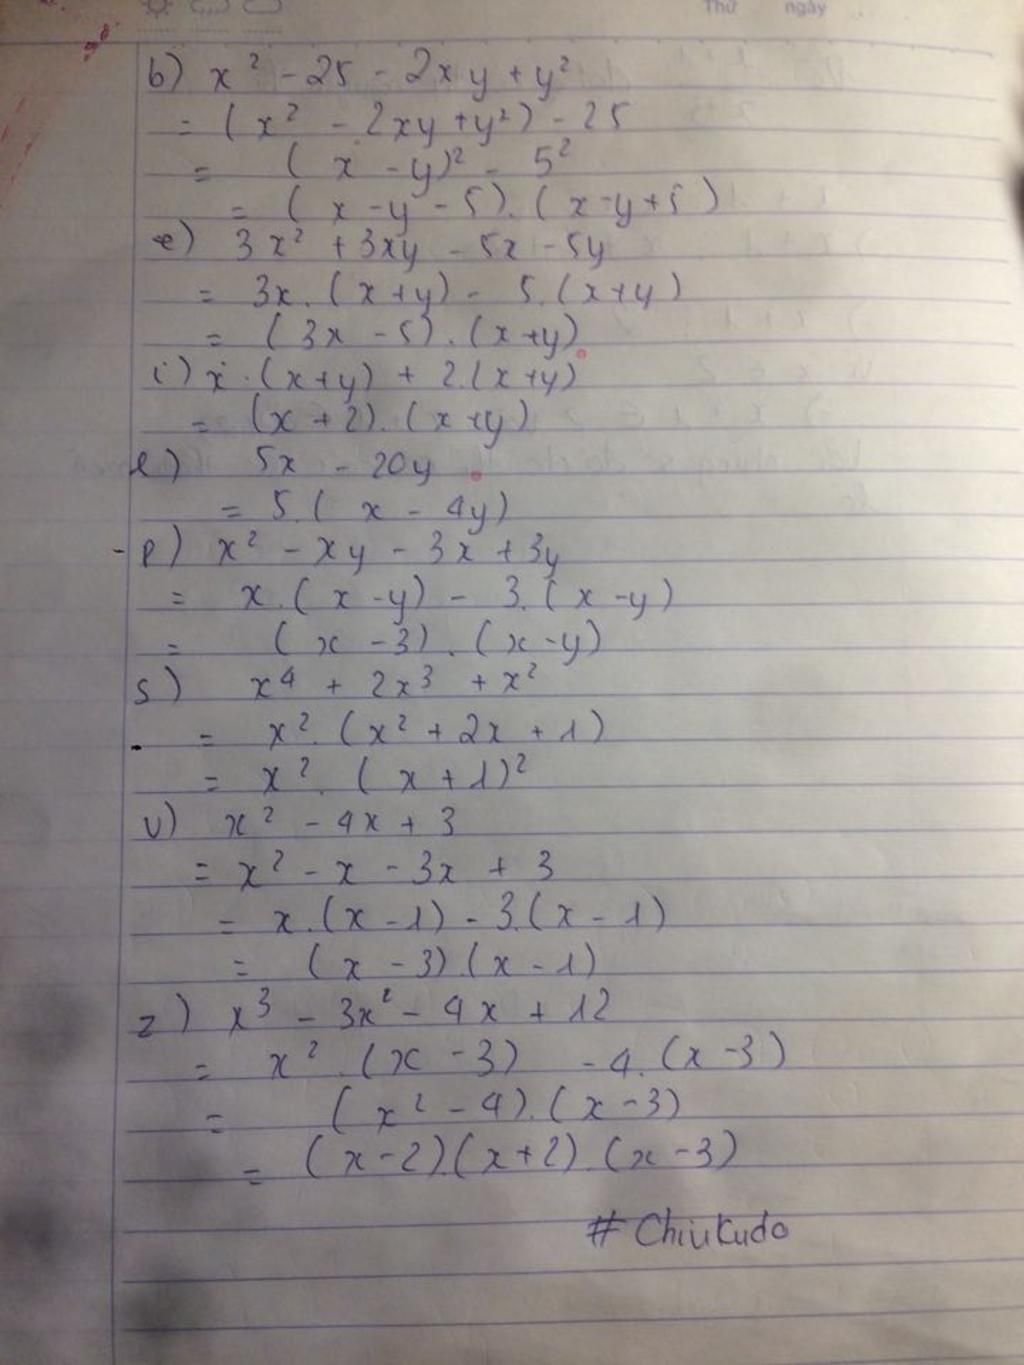 Thứ ngày
b) x² - 25 - 2xy + y²
= (x² - 2xy + y²) - 25
= (x - y)² - 5²
= (x - y - 5).(x - y + 5)
e) 3x² + 3xy - 5x - 5y
= 3x.(x + y) - 5.(x + y)
= (3x - 5).(x + y)
i) x.(x + y) + 2.(x + y)
= (x + 2).(x + y)
l) 5x - 20y
= 5.(x - 4y)
- p) x² - xy - 3x + 3y
= x.(x - y) - 3.(x - y)
= (x - 3).(x - y)
s) x⁴ + 2x³ + x²
= x².(x² + 2x + 1)
= x².(x + 1)²
v) x² - 4x + 3
= x² - x - 3x + 3
= x.(x - 1) - 3.(x - 1)
= (x - 3).(x - 1)
z) x³ - 3x² - 4x + 12
= x².(x - 3) - 4.(x - 3)
= (x² - 4).(x - 3)
= (x - 2).(x + 2).(x - 3)
# ChiuKudo